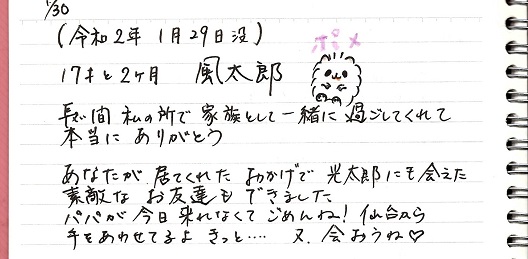 1/30
(令和2年 1月29日没)
ポメ
17才と2ヶ月 風太郎
長い間 私の所で 家族として一緒に 過ごしてくれて
本当に ありがとう
あなたが 居てくれた おかげで 光太郎にも会えた
素敵な お友達も できました
パパが 今日 来れなくて ごめんね! 仙台から
手をあわせてるよ きっと…. 又、会おうね♡